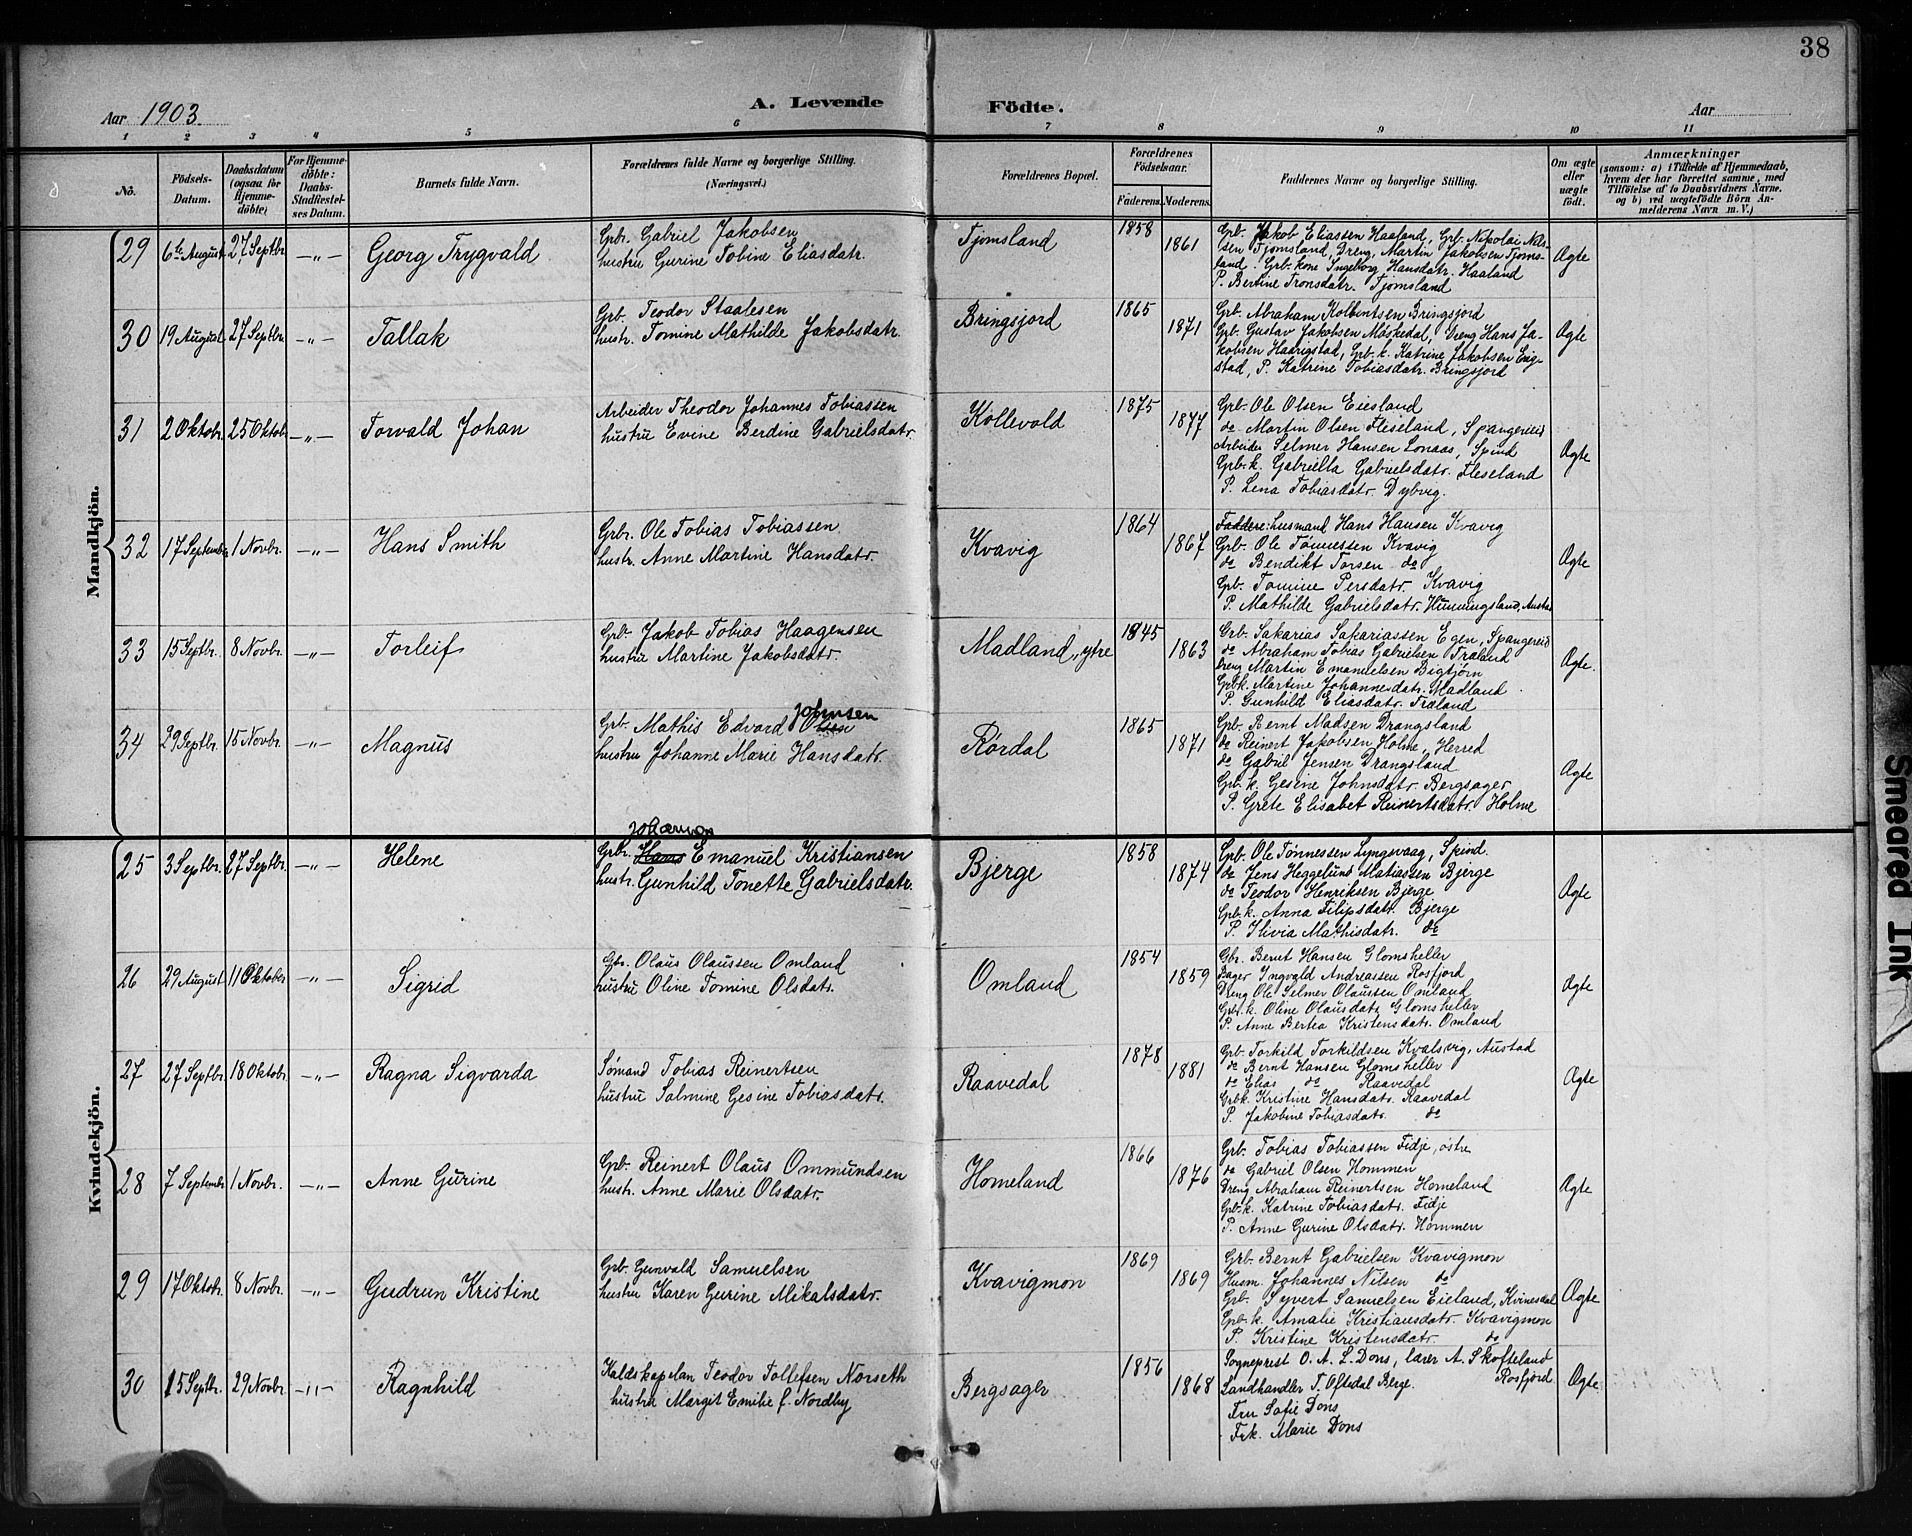 38
Aar 1903.
A. Levende
Födte.
Aar
1 2 3 4 5 6 7 8 9 10 11
No.
Födsels-
Datum.
Daabsdatum
(ogsaa for
Hjemme-
döbte)
For Hjemme-
döbte:
Daabs-
Stadfæstel-
ses Datum.
Barnets fulde Navn.
Forældrenes fulde Navne og borgerlige Stilling.
(Næringsvei.)
Forældrenes Bopæl.
Forældrenes
Födselsaar.
Faderens. Moderens.
Faddernes Navne og borgerlige Stilling.
Om ægte
eller
uægte
födt.
Anmærkninger
(saasom: a) i Tilfælde af Hjemmedaab,
hvem der har forrettet samme, med
Tilföielse af to Daabsvidners Navne.
og b) ved uægtefödte Börn An-
melderens Navn m. V.)
Mandkjön.
29 6te August 27 Septbr. —„— Georg Trygvald
Gbr. Gabriel Jakobsen
hustru Gurine Tobine Eliasdatr.
Tjomsland 1858 1861
Grb. Jakob Eliassen Haaland, Grb. Nikolai Nils-
sen Tjomsland, Dreng Martin Jakobsen Tjoms-
land. Grb. kone Ingeborg Hansdatr. Haaland
P. Bertine Tronsdatr. Tjomsland
Ægte
30 19 August 27 Septbr. —„— Tallak
Grb. Teodor Staalesen
hustr. Tomine Mathilde Jakobsdatr.
Bringsjord 1865 1871
Grb. Abraham Kolbentsen Bringsjord
Grb. Gustav Jakobsen Møskedal, Dreng Hans Ja-
kobsen Haarigstad, Grb. k. Katrine Jakobsen Eng-
stad, P. Katrine Tobiasdatr. Bringsjord
Ægte
31 2 Oktobr. 25 Oktob. —„— Torvald Johan
Arbeider Theodor Johannes Tobiassen
hustru Evine Berdine Gabrielsdatr.
Kollevold 1875 1877
Grb. Ole Olsen Eiesland
do Martin Olsen Fleseland, Spangereid
Arbeider Selmer Hansen Lonaas, Spind
Grb. k. Gabriella Gabrielsdatr. Fleseland
P. Lena Tobiasdatr. Dybvig.
Ægte
32 17 Septembr. 1 Novbr. —„— Hans Smith
Grb. Ole Tobias Tobiassen
hustr. Anne Martine Hansdatr.
Kvavig 1864 1867
Faddere: husmand Hans Hansen Kvavig
Grb. Ole Tønnessen Kvavig
do Bendikt Torsen do
Grb. Tomine Persdatr. Kvavig
P. Mathilde Gabrielsdatr. Hummingsland, Austad
Ægte
33 15 Septbr. 8 Novbr. —„— Torleif
Grb. Jakob Tobias Haagensen
hustru Martine Jakobsdatr.
Madland, ytre 1845 1863
Grb. Sakarias Sakariassen Egen, Spangereid
do Abraham Tobias Gabrielsen Træland
Dreng Martin Emanuelsen Bigtjørn
Grb. k. Martine Johannesdatr. Madland
P. Gunhild Eliasdatr. Træland
Ægte.
34 29 Septbr. 15 Novbr. —„— Magnus
Johnsen
Grb. Mathis Edvard Olsen
hustru Johanne Marie Hansdatr.
Rørdal 1865 1871
Grb. Bernt Madsen Drangsland
do Reinert Jakobsen Holme, Herred
do Gabriel Jensen Drangsland
Grb. k. Gesine Johnsdatr. Bergsager
P. Grete Elisabet Reinertsdatr. Holme
Ægte
Kvindekjön.
25 3 Septbr. 27 Septbr. —„— Helene
Johannes
Grb. Hans Emanuel Kristiansen
hustr. Gunhild Tonette Gabrielsdatr.
Bjerge 1858 1874
Grb. Ole Tønnessen Lyngsvaag, Spind.
do Jens Heggelund Matiassen Bjerge
do Teodor Henriksen Bjerge
Grb. k. Anna Filipsdatr. Bjerge
P. Silvia Mathisdatr. do
Ægte
26 29 August 11 Oktober —„— Sigrid
Gbr. Olaus Olaussen Omland
hustru Oline Tomine Olsdatr.
Omland 1854 1859
Gbr. Bernt Hansen Glomsheller
Bager Yngvald Andreassen Rosfjord
Dreng Ole Selmer Olaussen Omland
Grb. k. Oline Olausdatr. Glomsheller
P. Anne Bertea Kristensdatr. Omland
Ægte
27 27 Septbr. 18 Oktobr. —„— Ragna Sigvarda
Sømand Tobias Reinertsen
hustru Salmine Gesine Tobiasdatr.
Raavedal 1878 1881
Grb. Torkild Torkildsen Kvalsvig, Austad
do Bernt Hansen Glomsheller
do Elias do Raavedal
Grb. k. Kristine Hansdatr. Raavedal
P. Jakobine Tobiasdatr. do
Ægte
28 7 Septembr. 1 Novbr. —„— Anne Gurine
Grb. Reinert Olaus Ommundsen
hustr. Anne Marie Olsdatr.
Homeland 1866 1876
Grb. Tobias Tobiassen Fidje, østre
do Gabriel Olsen Hommen
Dreng Abraham Reinertsen Homeland
Grb. k. Katrine Tobiasdatr. Fidje
P. Anne Gurine Olsdatr. Hommen
Ægte
29 17 Oktobr. 8 Novbr. —„— Gudrun Kristine
Grb. Gunvald Samuelsen
hustru Karen Gurine Mikalsdatr.
Kvavigmon 1869 1869
Grb. Bernt Gabrielsen Kvavigmon
Husm. Johannes Nilsen do
Grb. Syvert Samuelsen Eieland, Kvinesdal
Grb. k. Amalie Kristiansdatr. Kvavigmon
P. Kristine Kristensdatr do
Ægte
30 15 Septbr. 29 Novbr. —„— Ragnhild
Kaldskapelan Teodor Tollefsen Norseth
hustru Margit Emilie f. Nordby
Bergsager 1856 1868
Sogneprest O. A. L. Dons, lærer A. Skofteland
Rosfjord
Landhandler T. Oftedal Berge.
Fru Sofie Dons
Frk. Marie Dons
Ægte
Smeared Ink